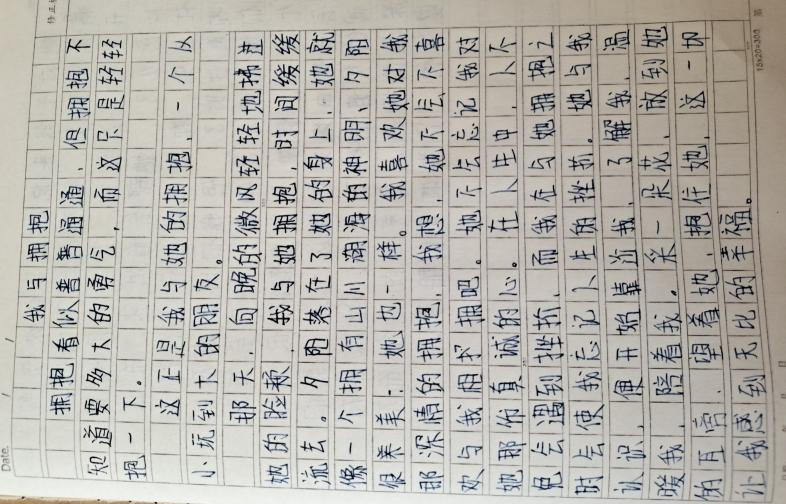 我与拥抱
拥抱看似普普通通,但拥抱不
知道要多大的勇气,而这尽是轻轻
抱一下。
这正是我与她的拥抱,一个从
小玩到大的朋友。
那天,向晚的微风轻轻地拂过
她的脸颊,我与她拥抱,时间缓缓
流去。夕阳落在了她的身上,她就
像一个拥有山川湖海的神明,夕阳
很美;她也一样。我喜欢她对我
那深情的拥抱,我想,她不会不喜
欢与我相拥吧。她不会忘记我对
她那份真诚的心。在人生中,人不
会遇到挫折,而我在与她拥抱之
时会使我忘记人生的挫折。她与我
认识,便开始靠近我,了解我,温
暖我,陪着我。采一朵花,放到她
的耳旁,望着她,抱住她,这一切
让我感到无比的幸福。
Date.
15x20=300
第